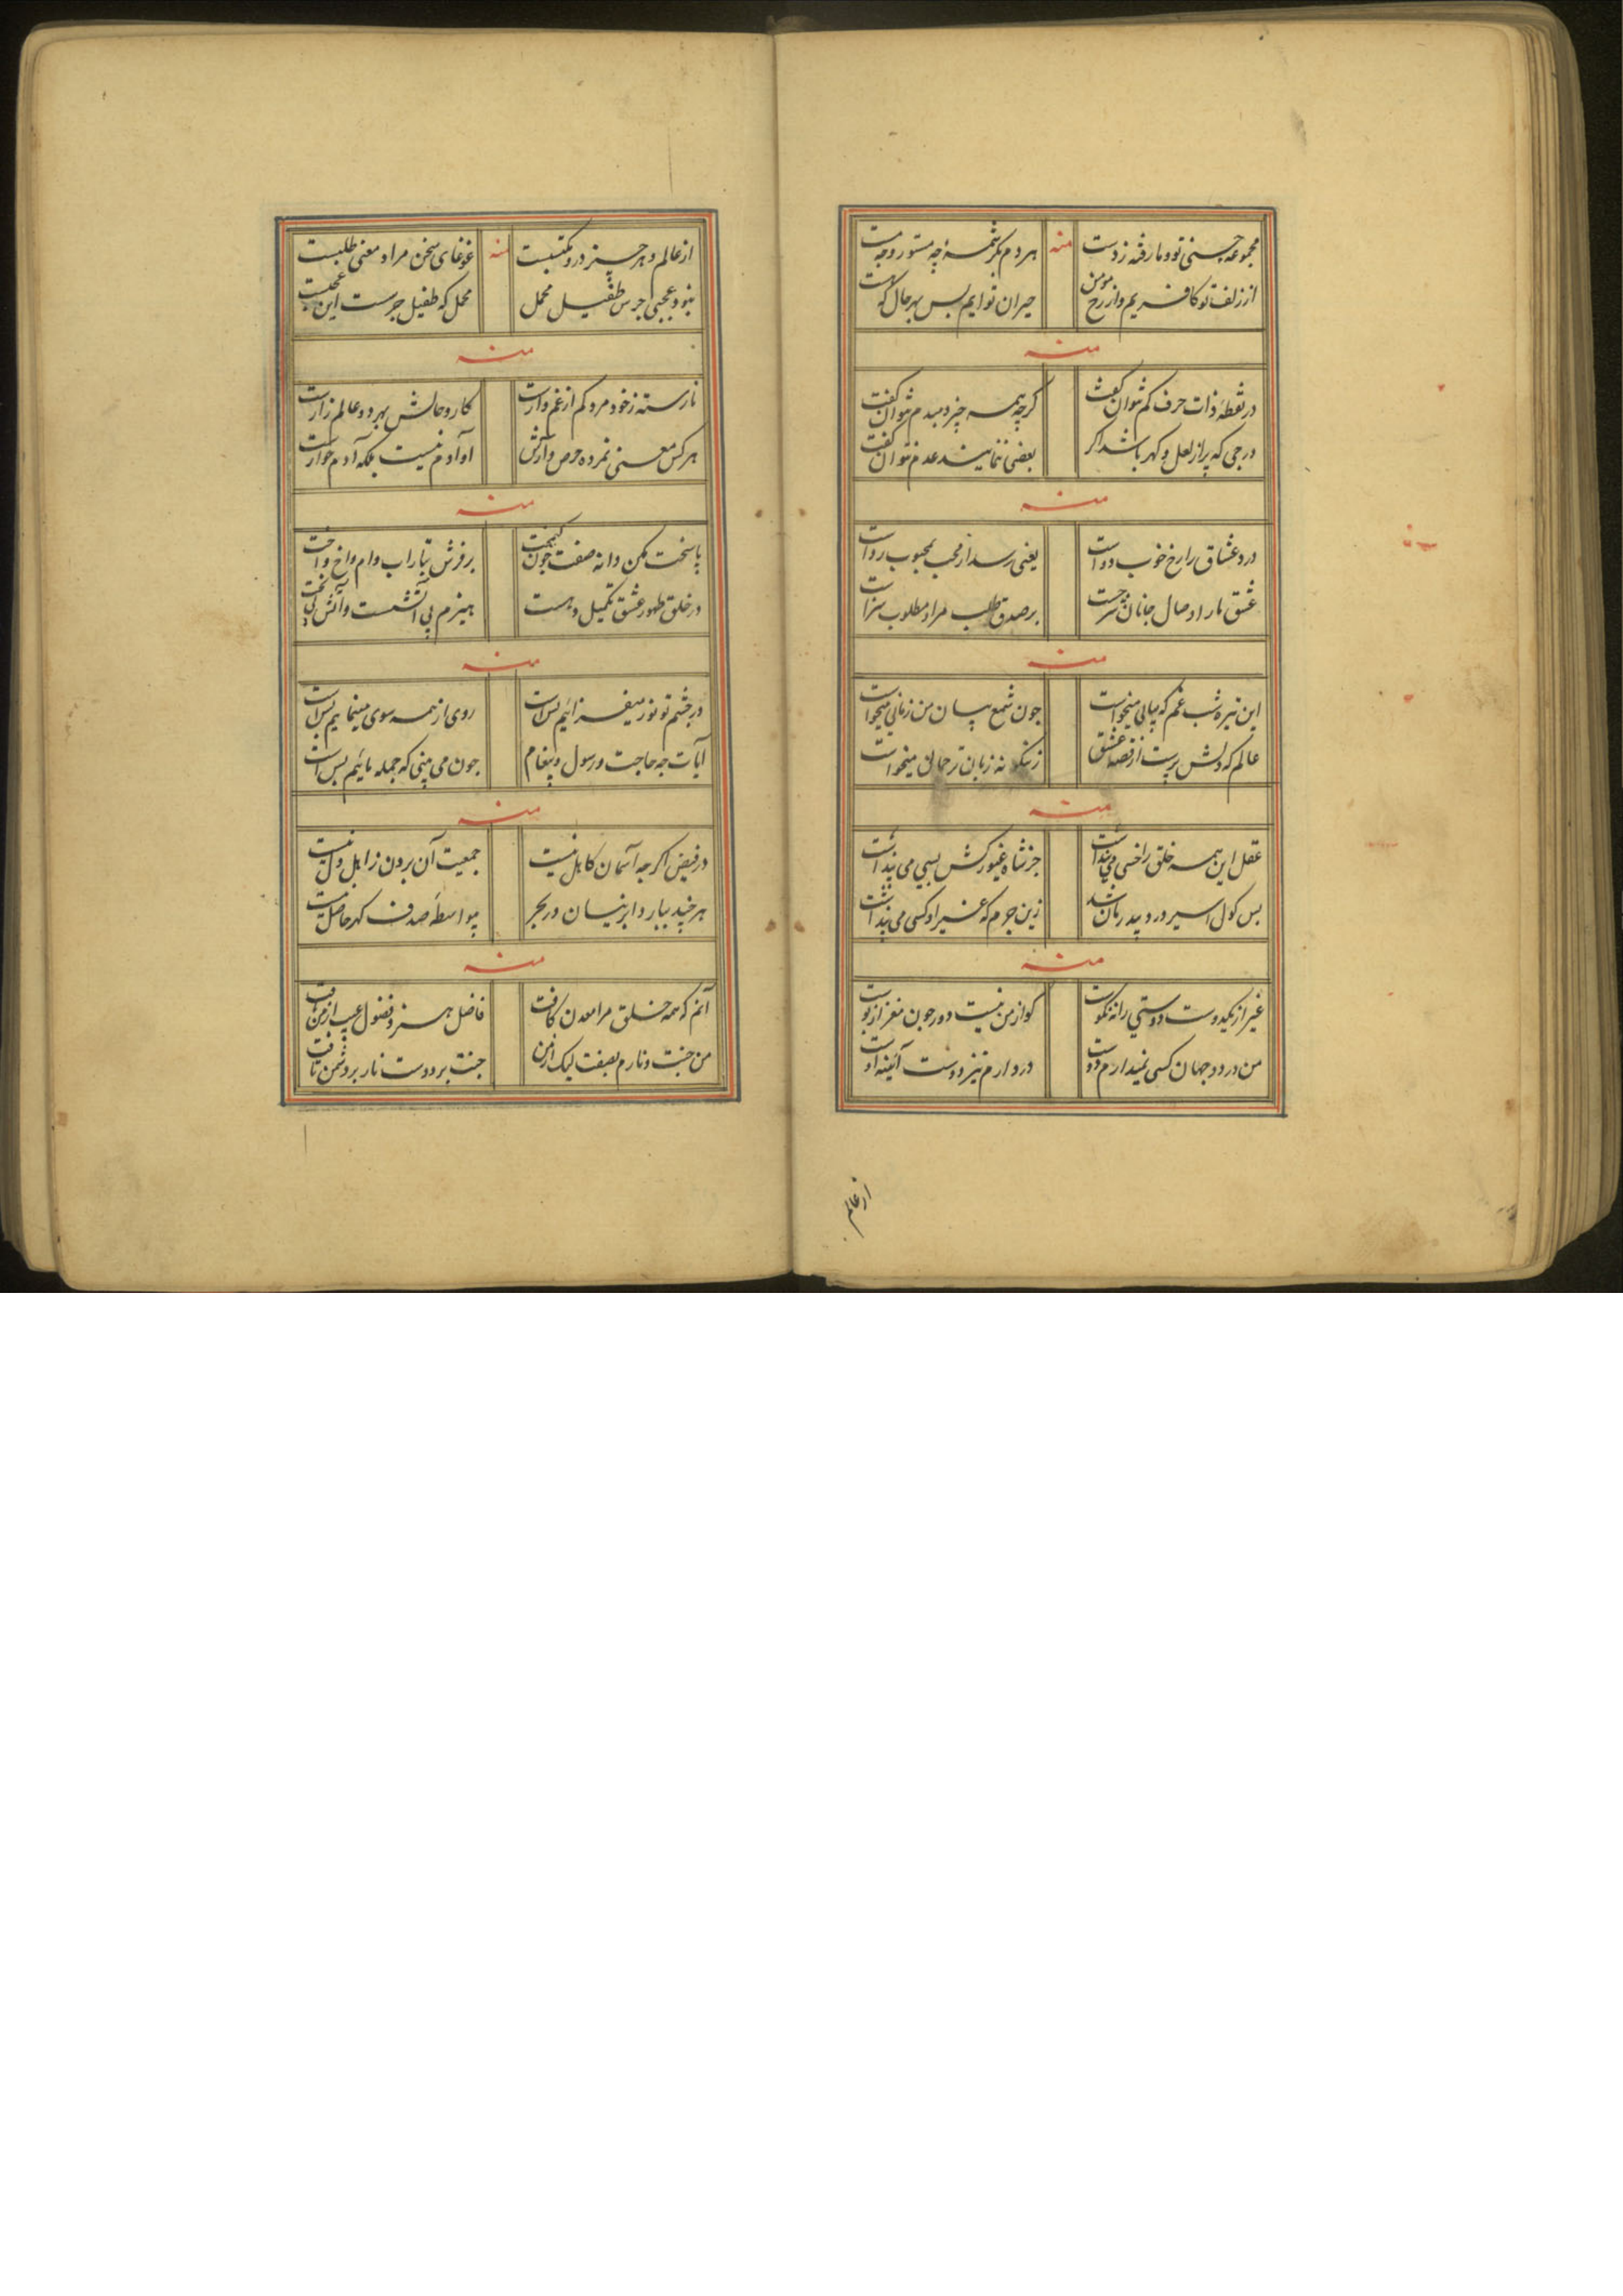 مجموعه حسنی تو و ما رفته ز دست
منه
هر دم بکرشمهٔ چه مستور و چه مست
از زلف تو کافریم و از رخ مومن
حیران توایم بس بهر حال که هست
منه
در نقطهٔ ذات حرف کم نتوان گفت
کرچه همه چیز دمبدم نتوان گفت
درجی که پر از لعل و کهر باشد اکر
بعضی ننمایند عدم نتوان گفت
منه
درد عشاق را رخ خوب دواست
یعنی رسد از محب بمحبوب رواست
عشق ما را وصال جانان
بر صدق طلب مراد مطلوب سزاست
منه
این تیره شب غم که پیانی میخواست
چون شمع بیان من زبانی میخواست
عالم که دلش پرست از قصه عشق
زینکونه زبان ترجمانی میخواست
منه
عقل این همه خلق را خسی می پنداشت
جز شاه غیور کش بسی می پنداشت
بس کول اسیر درد بیدرمان شد
زین جرم که غیر او کسی می پنداشت
منه
غیر از یکدوست دوستی را نه نکوست
کو از من نیست دور چون مغز از پوست
من در دو جهان کسی نمیدارم دوست
ور دارم نیز دوست آئینه اوست
از عالم
از عالم و هر چیز درو مکتسبست
منه
غوغای سخن مراد معنی طلبست
نبود عجبی جرس طفیل محمل
محمل که طفیل جرست این عجبست
منه
نارسته ز خود مرو کم از غم وارست
کار و حالش بهر دو عالم زارست
هر کس معنی نمرده حرص و آزش
او آدم نیست بلکه آدم خوارست
منه
پا سخت مکن دانه صفت چون
بر فرش تراب دام و اخ واخت
در خلق ظهور عشق تکمیل دهست
هیزم پی آتشست و آتش پی
منه
در چشم تو نور میفزائیم بس است
روی از همه سوی مینمائیم بس است
آیات چه حاجت و رسول و پیغام
چون می بینی که جمله مائیم بس است
منه
در فیض اکر چه آسمان کاهل نیست
جمعیت آن برون ز اهل دل نیست
هر چند ببارد ابر نیسان در بحر
بیواسطهٔ صدف کهر حاصل نیست
منه
آنم که همه خلق مرا معدن یافت
فاضل هنر و فضول عیب از من یافت
من جنت و نارم بصفت لیک از من
جنت بر دوست نار بر دشمن تافت